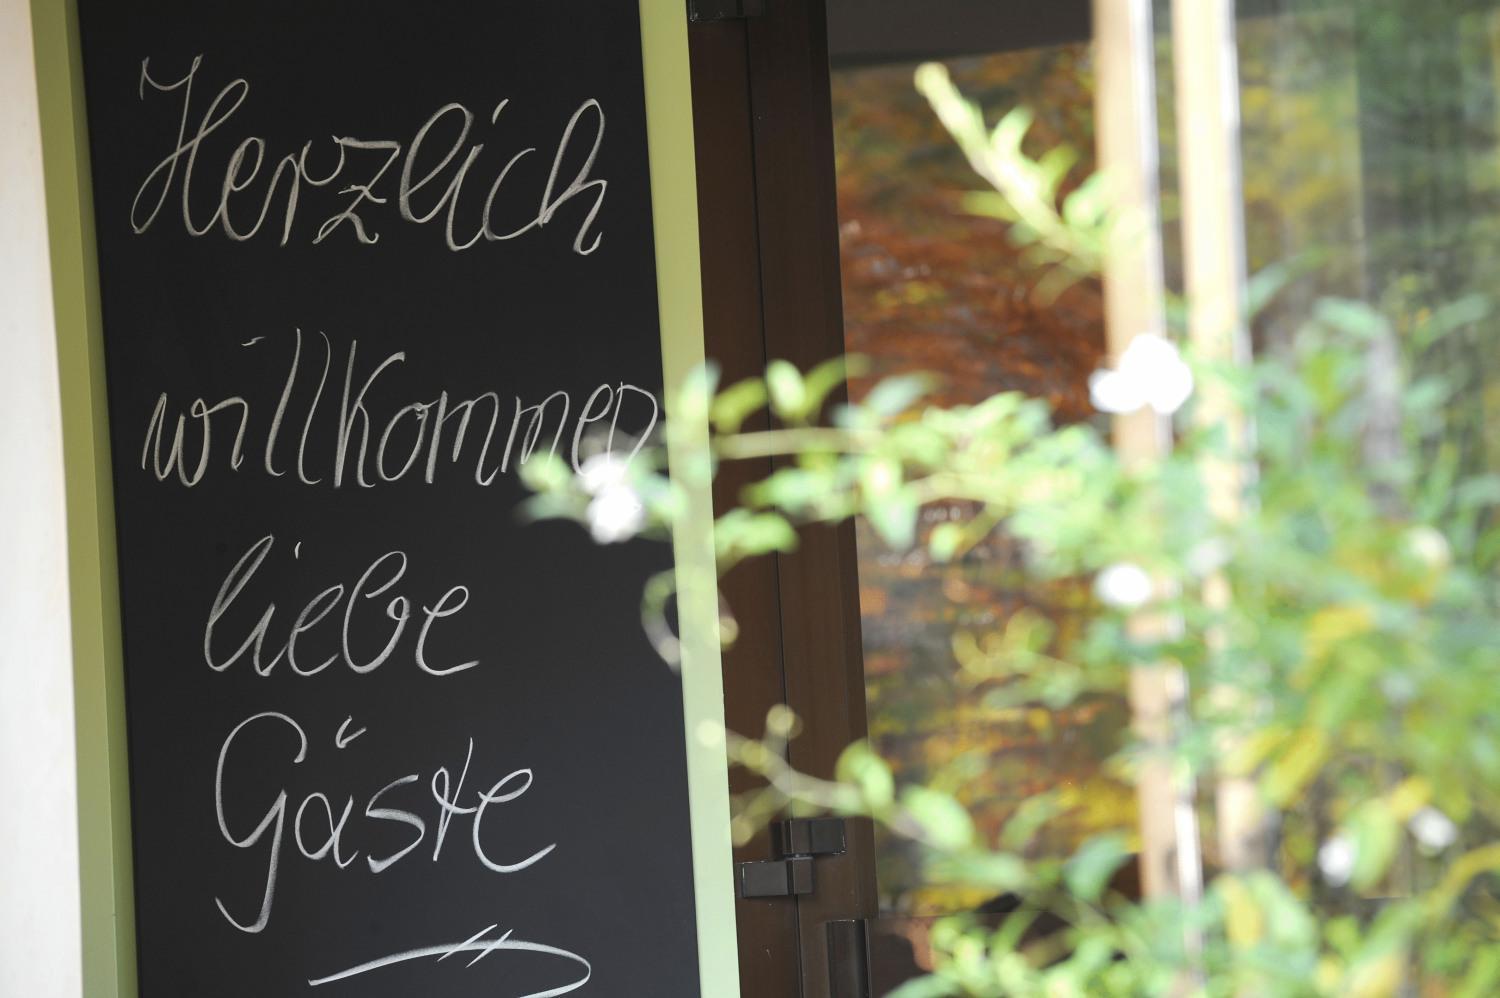 Herzlich
willkommen
liebe
Gäste